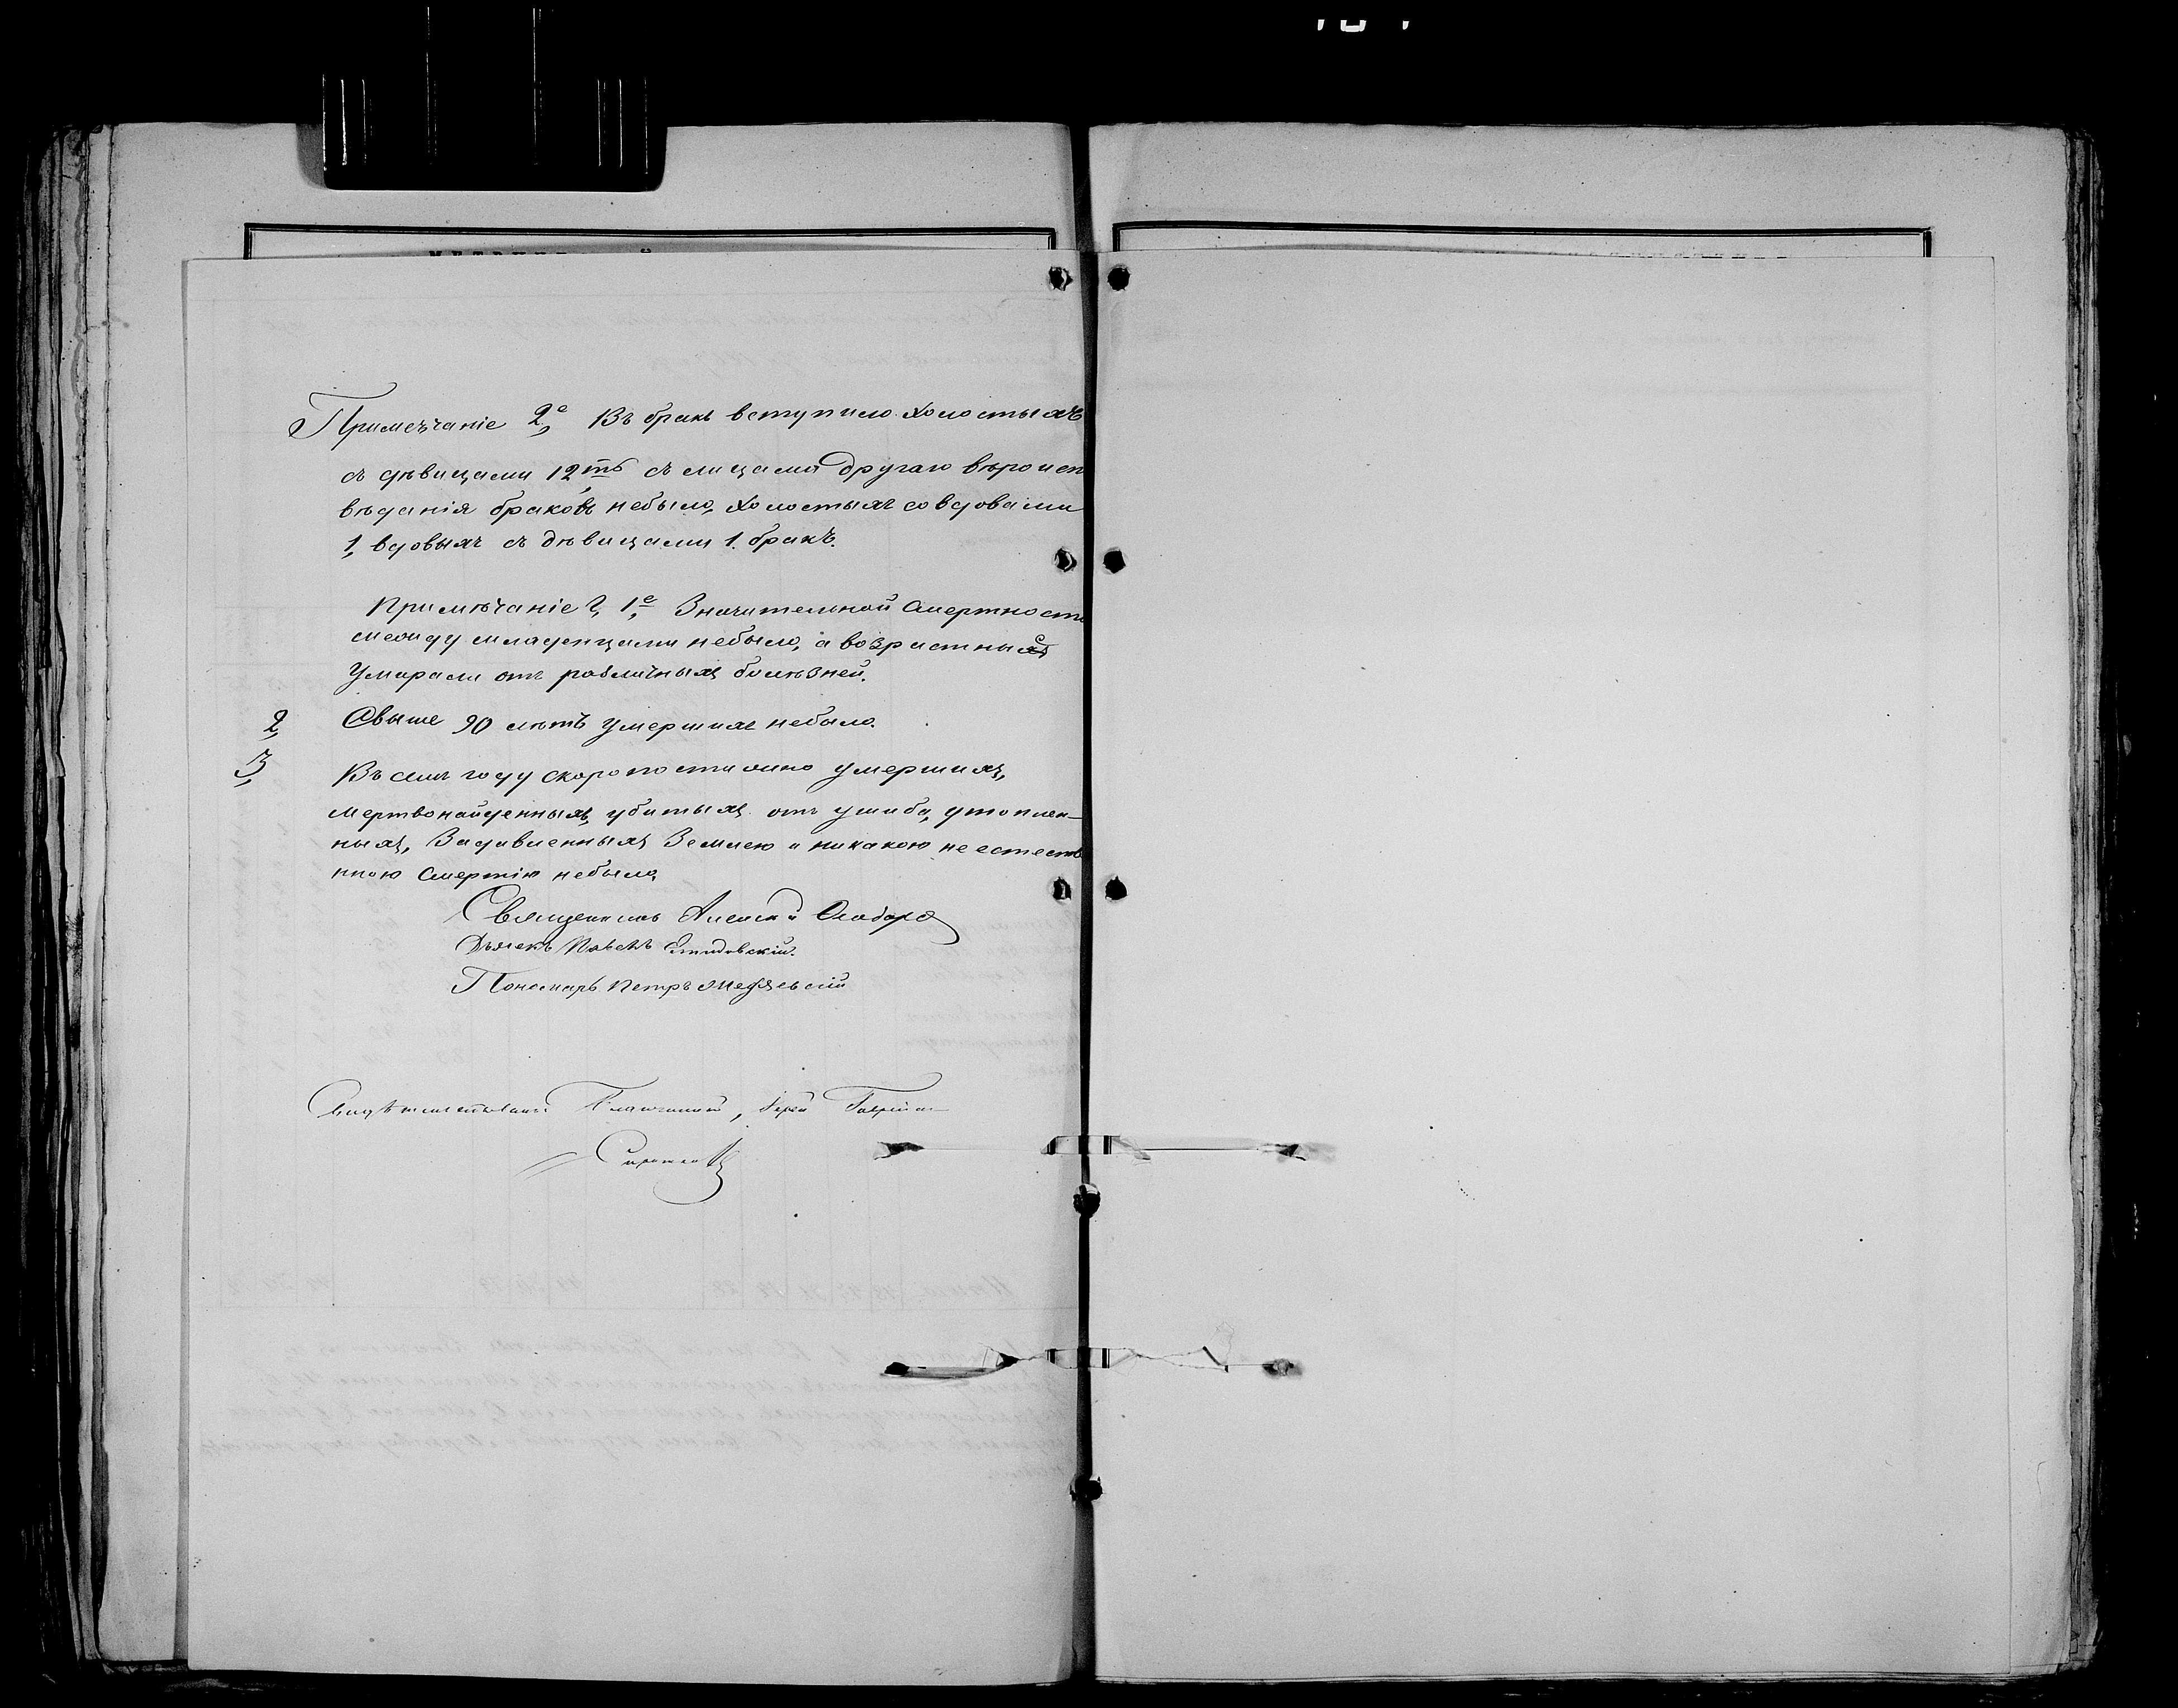 Примечаніе 2е, Въ бракъ вступило холостыхъ
съ дѣвицами 12ть съ лицами другаго вѣроисп
вѣданія браковъ небыло, холостыхъ со вдовами
1, вдовыхъ съ дѣвицами 1. бракъ.
Примѣчаніе 1е, Значительной смертности
между младенцами небыло, а возрастные
умирали отъ различныхъ болѣзней.
2, Свыше 90 лѣтъ умершихъ небыло.
3, Въ семъ году скоропостижно умершихъ,
мертвонайденныхъ, убитыхъ отъ ушиба, утоплен-
ныхъ, задавленныхъ землею и никакою не естеств
нною смертію небыло,
Священникъ Алексій
Дьячекъ Павелъ
Пономарь Петръ
Свидѣтельствовалъ Благочинный, Іерей Гавріилъ